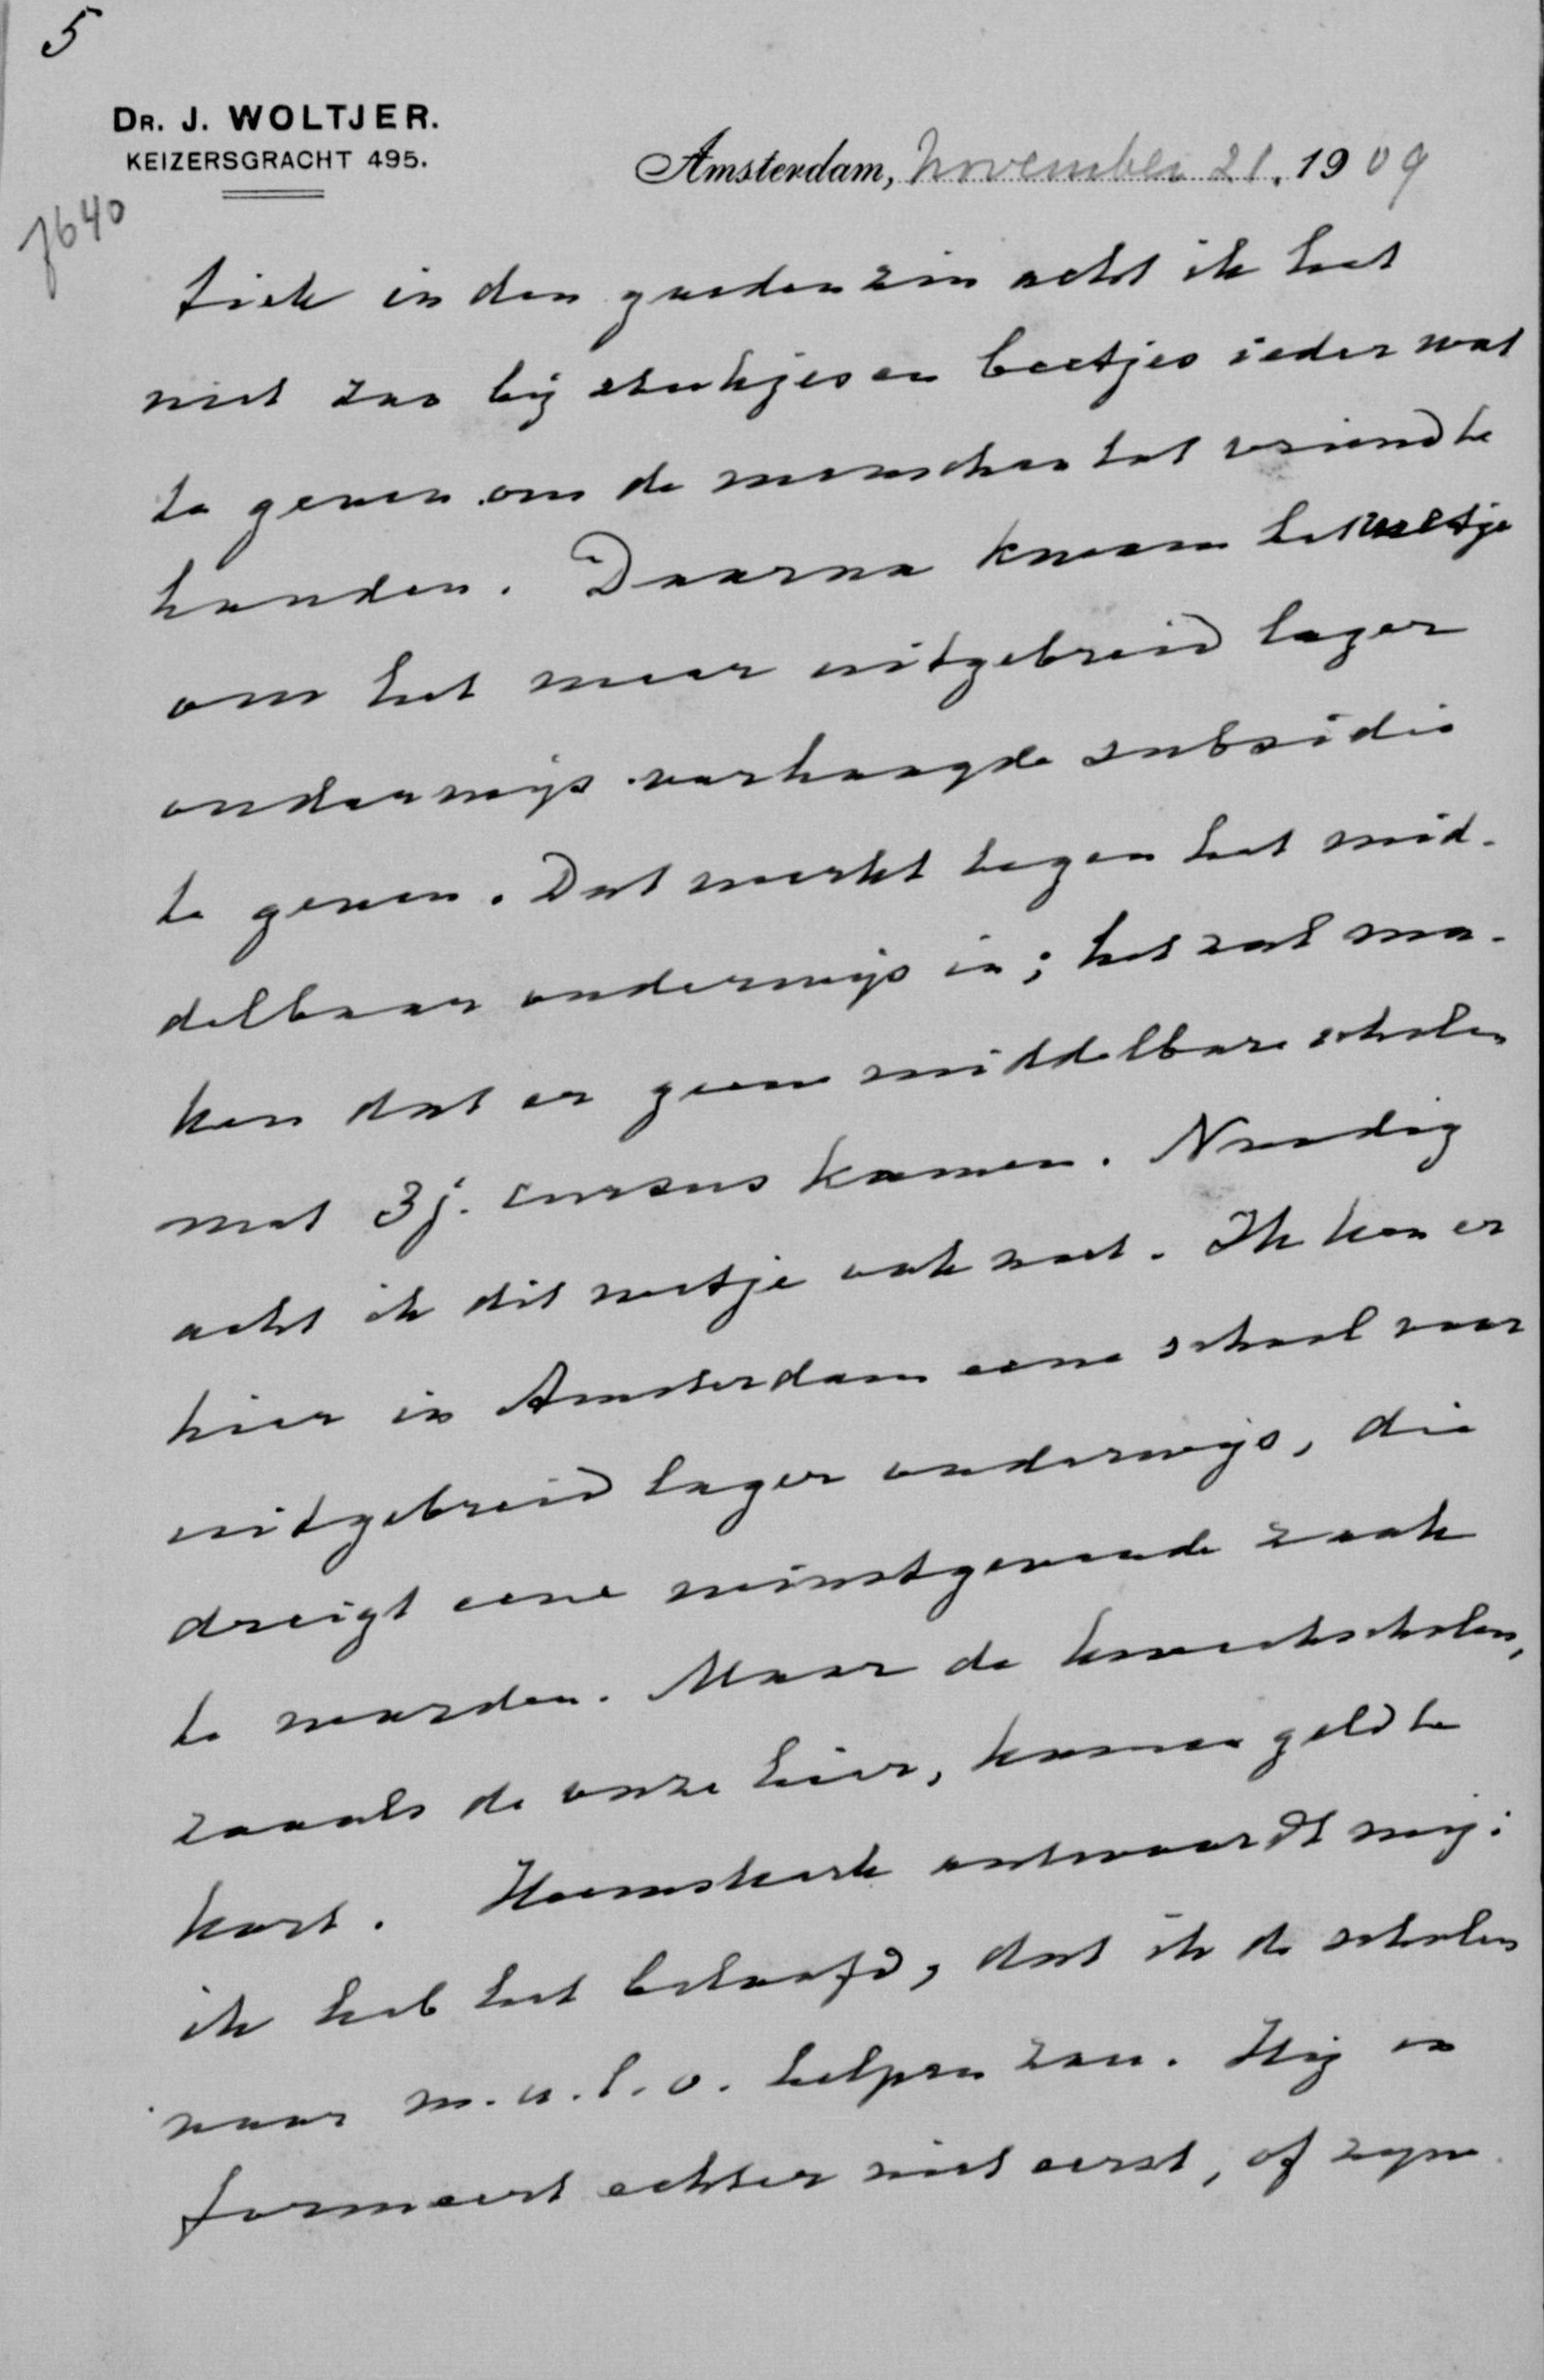 5
DR. J. WOLTJER.
KEIZERSGRACHT 495.
Amsterdam, November 21. 1909
7640
tiek in den goeden zin acht ik het
niet zoo bij stukjes en beetjes ieder wat
te geven om de menschen tot vriend te
houden. Daarna kwam het wetje
om het meer uitgebreid lager
onderwijs verhoogde subsidie
te geven. Dat werkt tegen het mid-
delbaar onderwijs in; het zal ma-
ken dat er geene middelbare scholen
met 3 j. cursus komen. Noodig
acht ik dit wetje ook niet. Ik ken er
hier in Amsterdam eene school voor
uitgebreid lager onderwijs, die
dreigt eene winstgevende zaak
te worden. Maar de kweekscholen,
zooals de onze hier, komen geld te
kort. Heemskerk antwoordt mij:
ik heb het beloofd, dat ik de scholen
voor m.u.l.o. helpen zou. Hij in
formeert echter niet eerst, of zijn